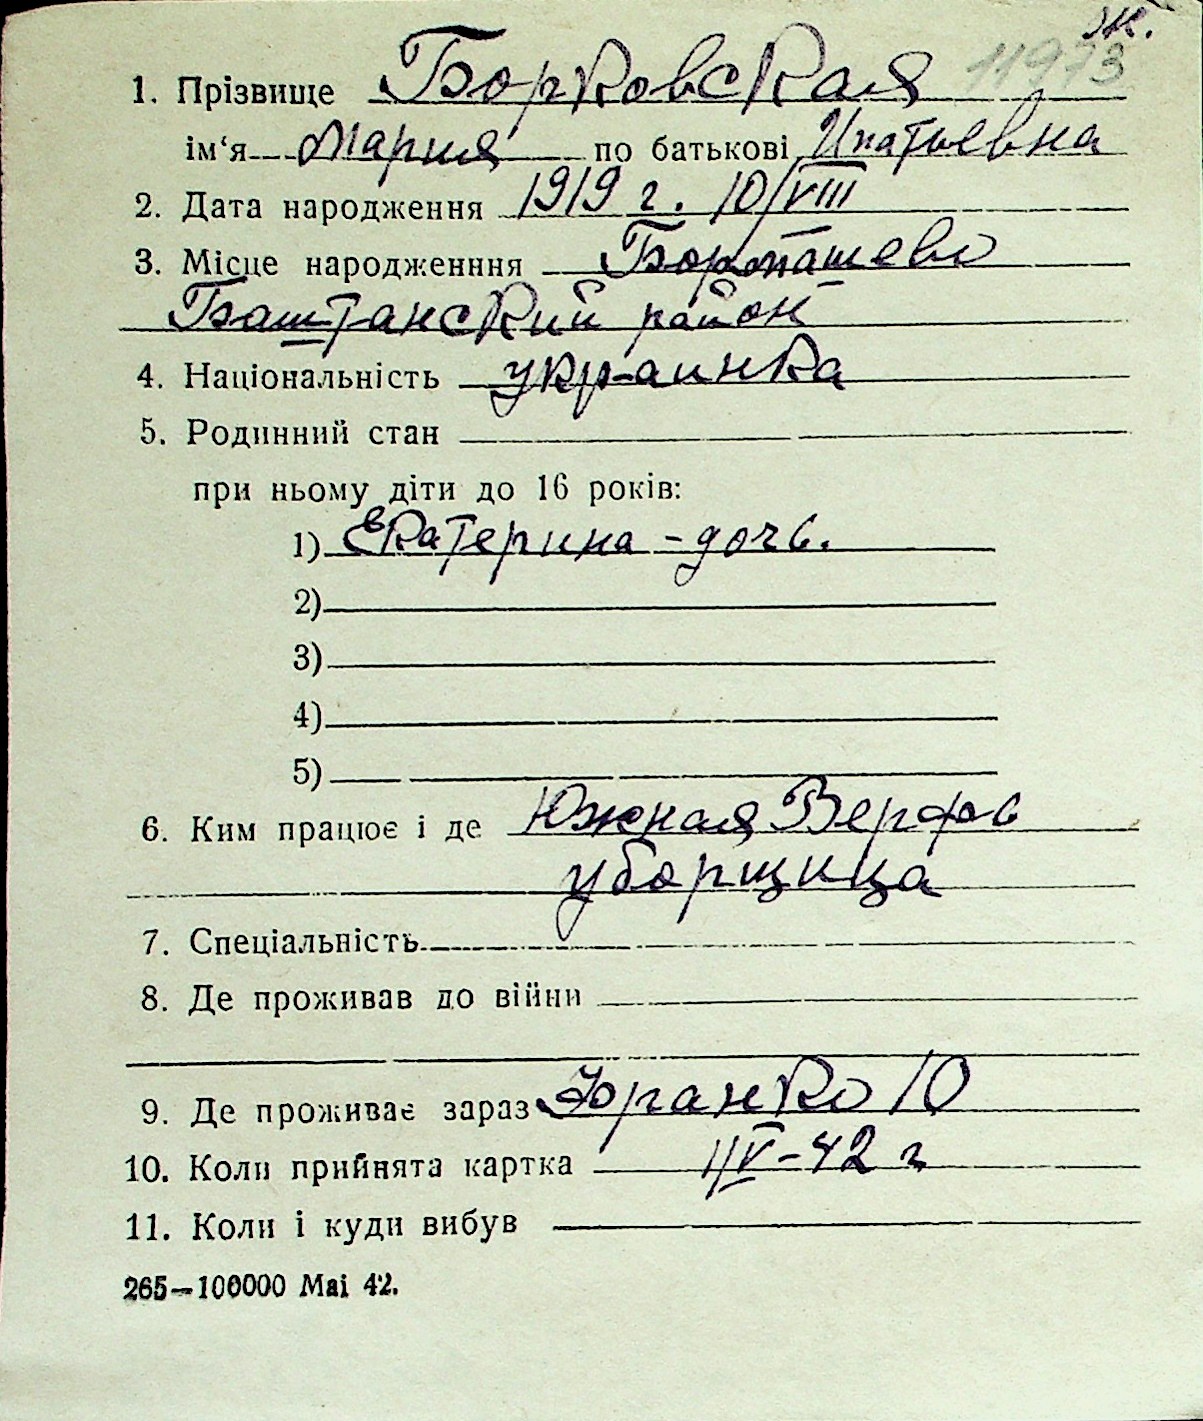 Ж.
11973
1. Прізвище Борковская
ім‘я Мария по батькові Ипатьевна
2. Дата народження 1919 г. 10/VIII
3. Місце народженння
Баштанский район
4. Національність украинка
5. Родинний стан
при ньому діти до 16 років:
1) Екатерина - дочь.
2)
3)
4)
5)
6. Ким працює і де Южная Верфь
уборщица
7. Спеціальність
8. Де проживав до війни
9. Де проживає зараз Франко 10
10. Коли прийнята картка 1/V-42 г
11. Коли і куди вибув
265—100000 Mai 42.